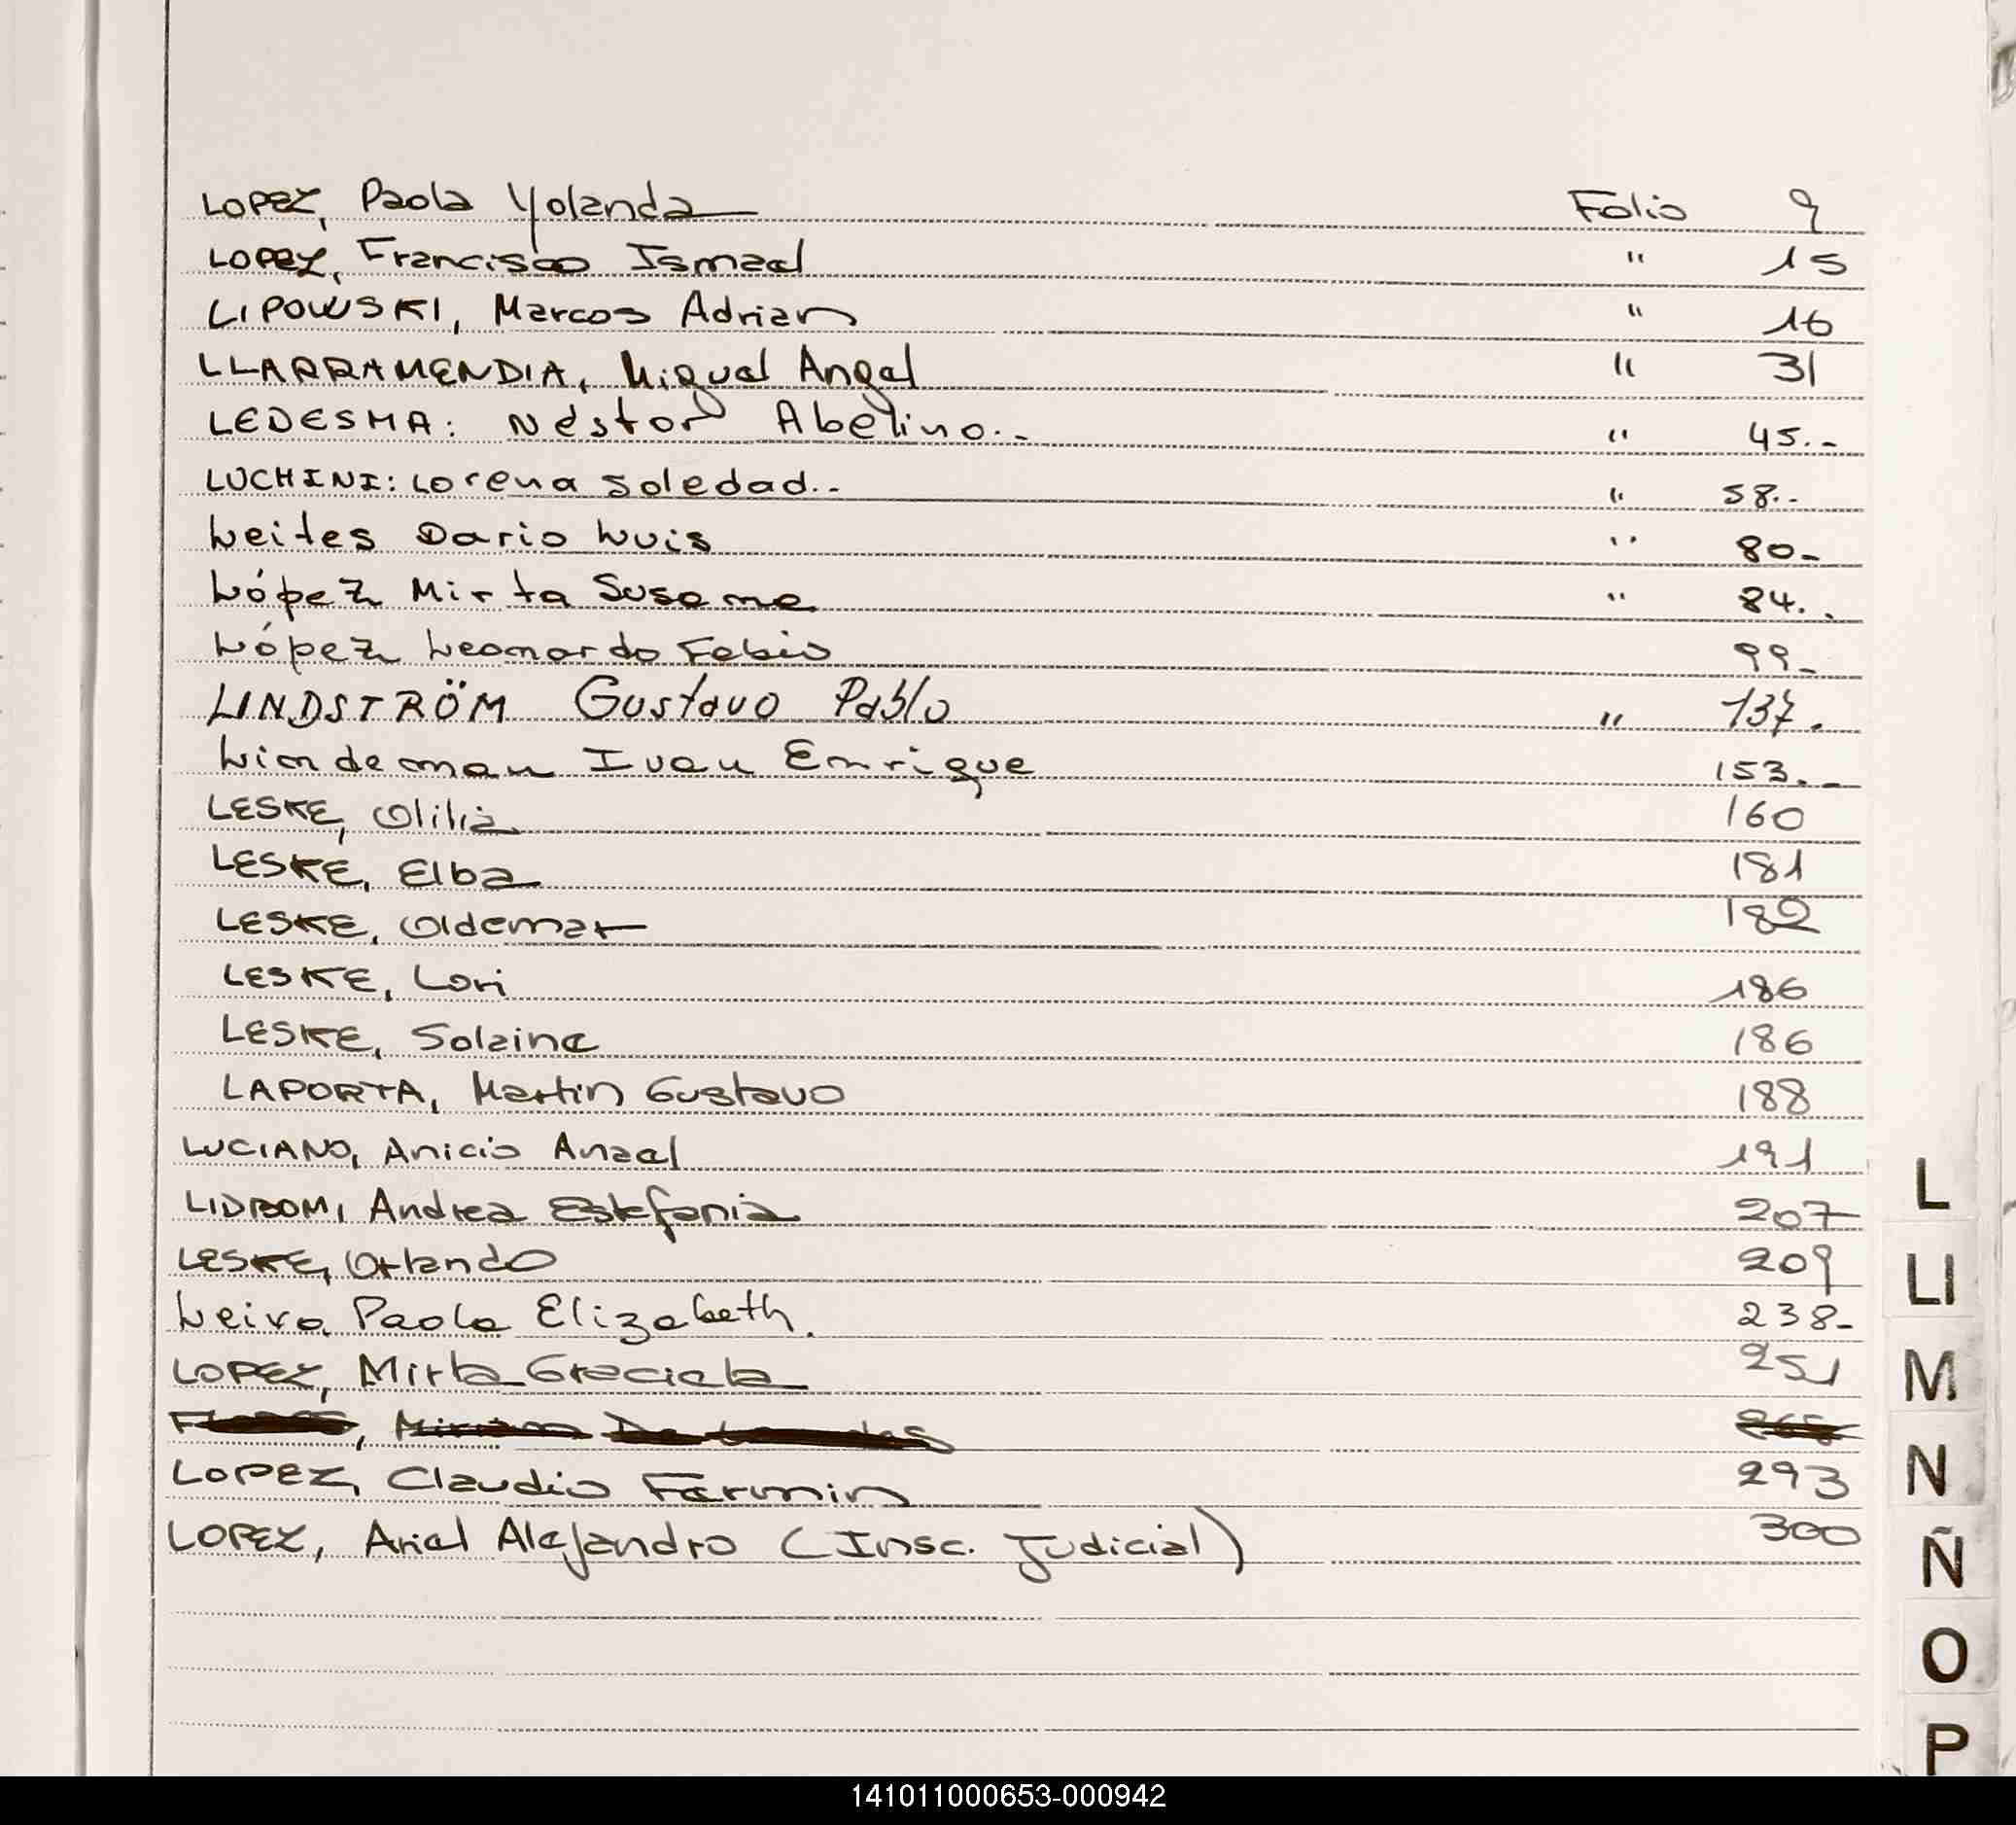 LOPEZ, Paola Yolanda Folio 9
LOPEZ, Francisco Ismael " 15
LIPOWSKI, Marcos Adrian " 16
LLARRAMENDIA, Miguel Angel " 31
LEDESMA: Néstor Abelino.- " 45.-
LUCHINI: Lorena Soledad.- " 58.-
Leites Dario Luis " 80-
López Mirta Susana " 84.-
López Leonardo Fabio 99-
LINDSTRÖM Gustavo Pablo " 137.
Lindeman Ivan Enrique 153.-
LESKE, Olilia 160
LESKE, Elba 181
LESKE, Oldemar 182
LESKE, Lori 186
LESKE, Solaine 186
LAPORTA, Martin Gustavo 188
LUCIANO, Anicio Anael 191
Andrea Estefania 207
LESKE, Orlando 209
Leiva Paola Elizabeth. 238-
LOPEZ, Mirta Graciela 251
LOPEZ, Claudio Fermin 293
LOPEZ, Ariel Alejandro (Insc. Judicial) 300
L
Ll
M
N
Ñ
O
P
141011000653-000942